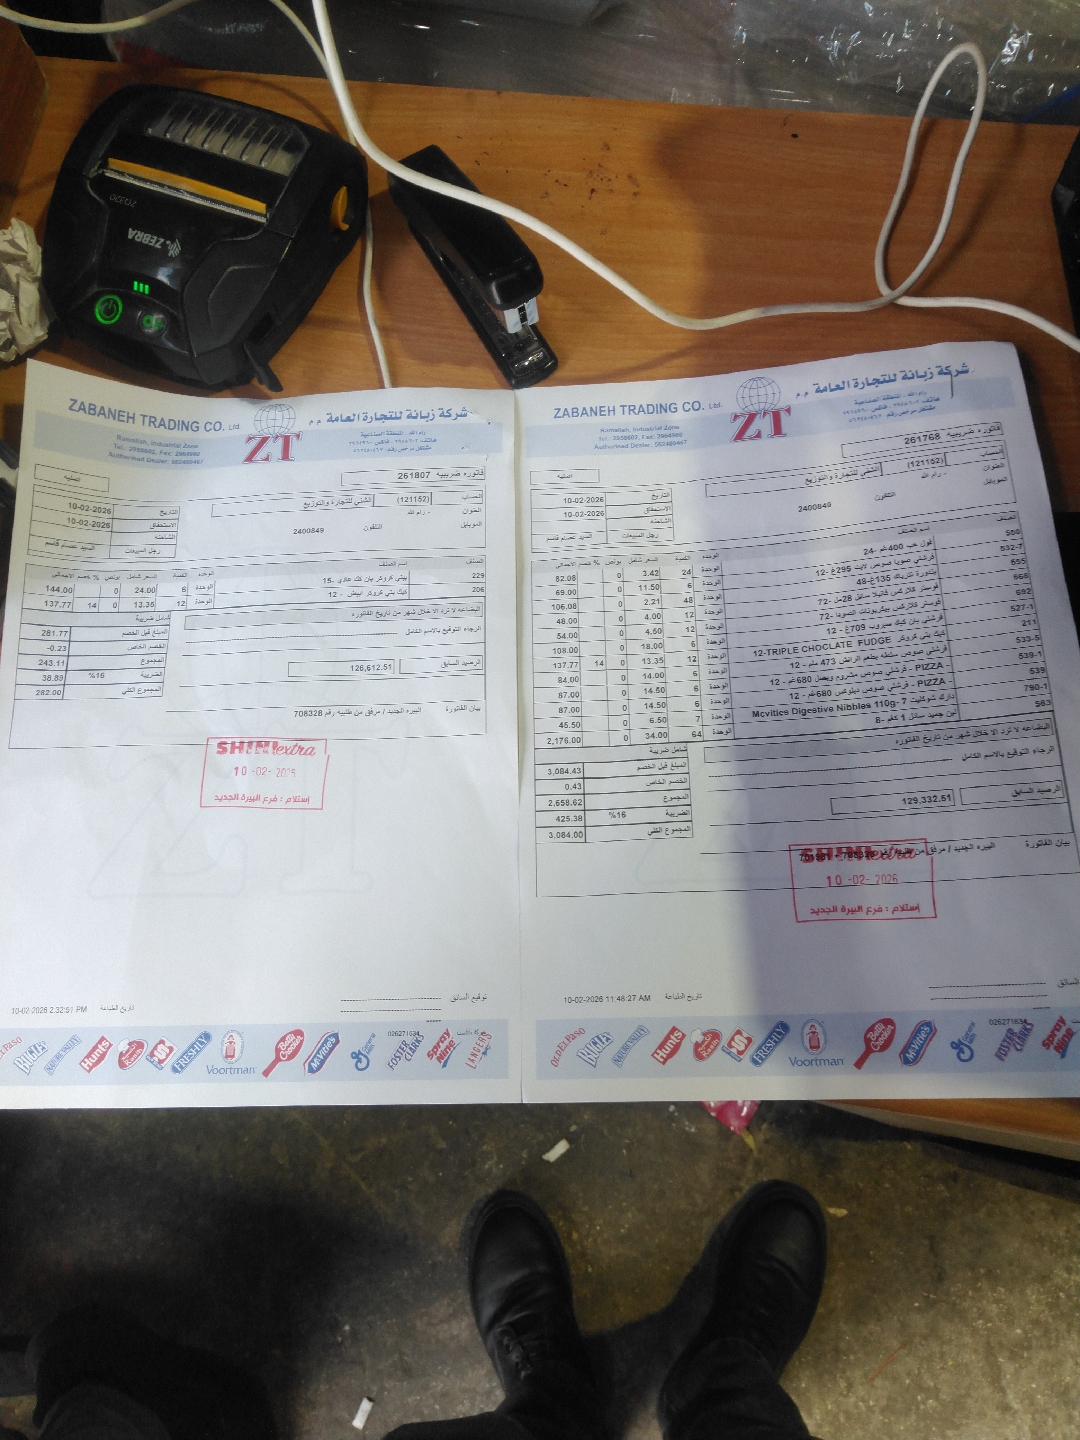 ZQ320
ZEBRA
ZABANEH TRADING CO. Ltd.
ZT
شركة زبانة للتجارة العامة م.م
Ramallah, Industrial Zone
Tel.: 2958602, Fax: 2964960
Authorised Dealer: 562460467
رام الله - المنطقة الصناعية
اصليه
فاتوره ضريبيه 261807
الحساب (121152) الشني للتجارة والتوزيع
العنوان - رام الله
الموبايل التلفون 2400849
التاريخ 10-02-2026
الاستحقاق 10-02-2026
الشاحنه
رجل المبيعات السيد عصام قاسم
الصنف اسم الصنف الوحدة الكمية السعر شامل بونص % خصم الاجمالي
229 بيتي كروكر بان كك عادي -15 الوحدة 6 24.00 0 144.00
206 كيك بتي كروكر ابيض - 12 الوحدة 12 13.35 0 14 137.77
البضاعه لا ترد الا خلال شهر من تاريخ الفاتوره
الرجاء التوقيع بالاسم الكامل
شامل ضريبة
المبلغ قبل الخصم 281.77
الخصم الخاص -0.23
المجموع 243.11
الضريبة %16 38.89
المجموع الكلي 282.00
الرصيد السابق 126,612.51
بيان الفاتورة البيره الجديد / مرفق من طلبيه رقم 708328
SHINI extra
10 -02- 2026
إستلام : فرع البيرة الجديد
توقيع السائق
تاريخ الطباعة 10-02-2026 2:32:51 PM
026271634
OLD EL PASO
BUGLES
NATURE VALLEY
Hunts
FRESHLY
Voortman
Betty Crocker
McVitie's
General Mills
FOSTER CLARKS
Spray Nine
LANCERS
ZABANEH TRADING CO. Ltd.
ZT
شركة زبانة للتجارة العامة م.م
Ramallah, Industrial Zone
Tel.: 2958602, Fax: 2964960
Authorised Dealer: 562460467
رام الله - المنطقة الصناعية
اصليه
فاتوره ضريبيه 261768
الحساب (121152) الشني للتجارة والتوزيع
العنوان - رام الله
الموبايل التلفون 2400849
التاريخ 10-02-2026
الاستحقاق 10-02-2026
الشاحنه
رجل المبيعات السيد عصام قاسم
الصنف اسم الصنف الوحدة الكمية السعر شامل بونص % خصم الاجمالي
550 فول حب 400غم -24 الوحدة 24 3.42 0 82.08
532-7 فرشلي صويا صوص لايت 295غ -12 الوحدة 6 11.50 0 69.00
555 135غ-48 الوحدة 48 2.21 0 106.08
668 فوستر كلاركس فانيلا سائل 28مل -72 الوحدة 12 4.00 0 48.00
692 فوستر كلاركس بيكربونات الصودا -72 الوحدة 12 4.50 0 54.00
527-1 فرشلي بان كيك سيروب 709غ - 12 الوحدة 6 18.00 0 108.00
211 كيك بتي كروكر 12-TRIPLE CHOCLATE FUDGE الوحدة 12 13.35 0 14 137.77
533-5 فرشلي صوص سلطه بطعم الرانش 473 ملم - 12 الوحدة 6 14.00 0 84.00
539-1 PIZZA - فرشلي صوص مشروم وبصل 680غم - 12 الوحدة 6 14.50 0 87.00
539 PIZZA - فرشلي صوص ديلوكس 680غم - 12 الوحدة 6 14.50 0 87.00
790-1 دارك شوكليت Mcvities Digestive Nibbles 110g- 7 الوحدة 7 6.50 0 45.50
563 لبن جميد سائل 1 كغم -8 الوحدة 64 34.00 0 2,176.00
البضاعه لا ترد الا خلال شهر من تاريخ الفاتوره
الرجاء التوقيع بالاسم الكامل
شامل ضريبة
المبلغ قبل الخصم 3,084.43
الخصم الخاص 0.43
المجموع 2,658.62
الضريبة %16 425.38
المجموع الكلي 3,084.00
الرصيد السابق 129,332.51
بيان الفاتورة البيره الجديد / مرفق من طلبيه رقم
SHINI extra
10 -02- 2026
إستلام : فرع البيرة الجديد
السائق
تاريخ الطباعة 10-02-2026 11:48:27 AM
026271634
OLD EL PASO
BUGLES
NATURE VALLEY
Hunts
FRESHLY
Voortman
Betty Crocker
McVitie's
FOSTER CLARKS
Spray Nine